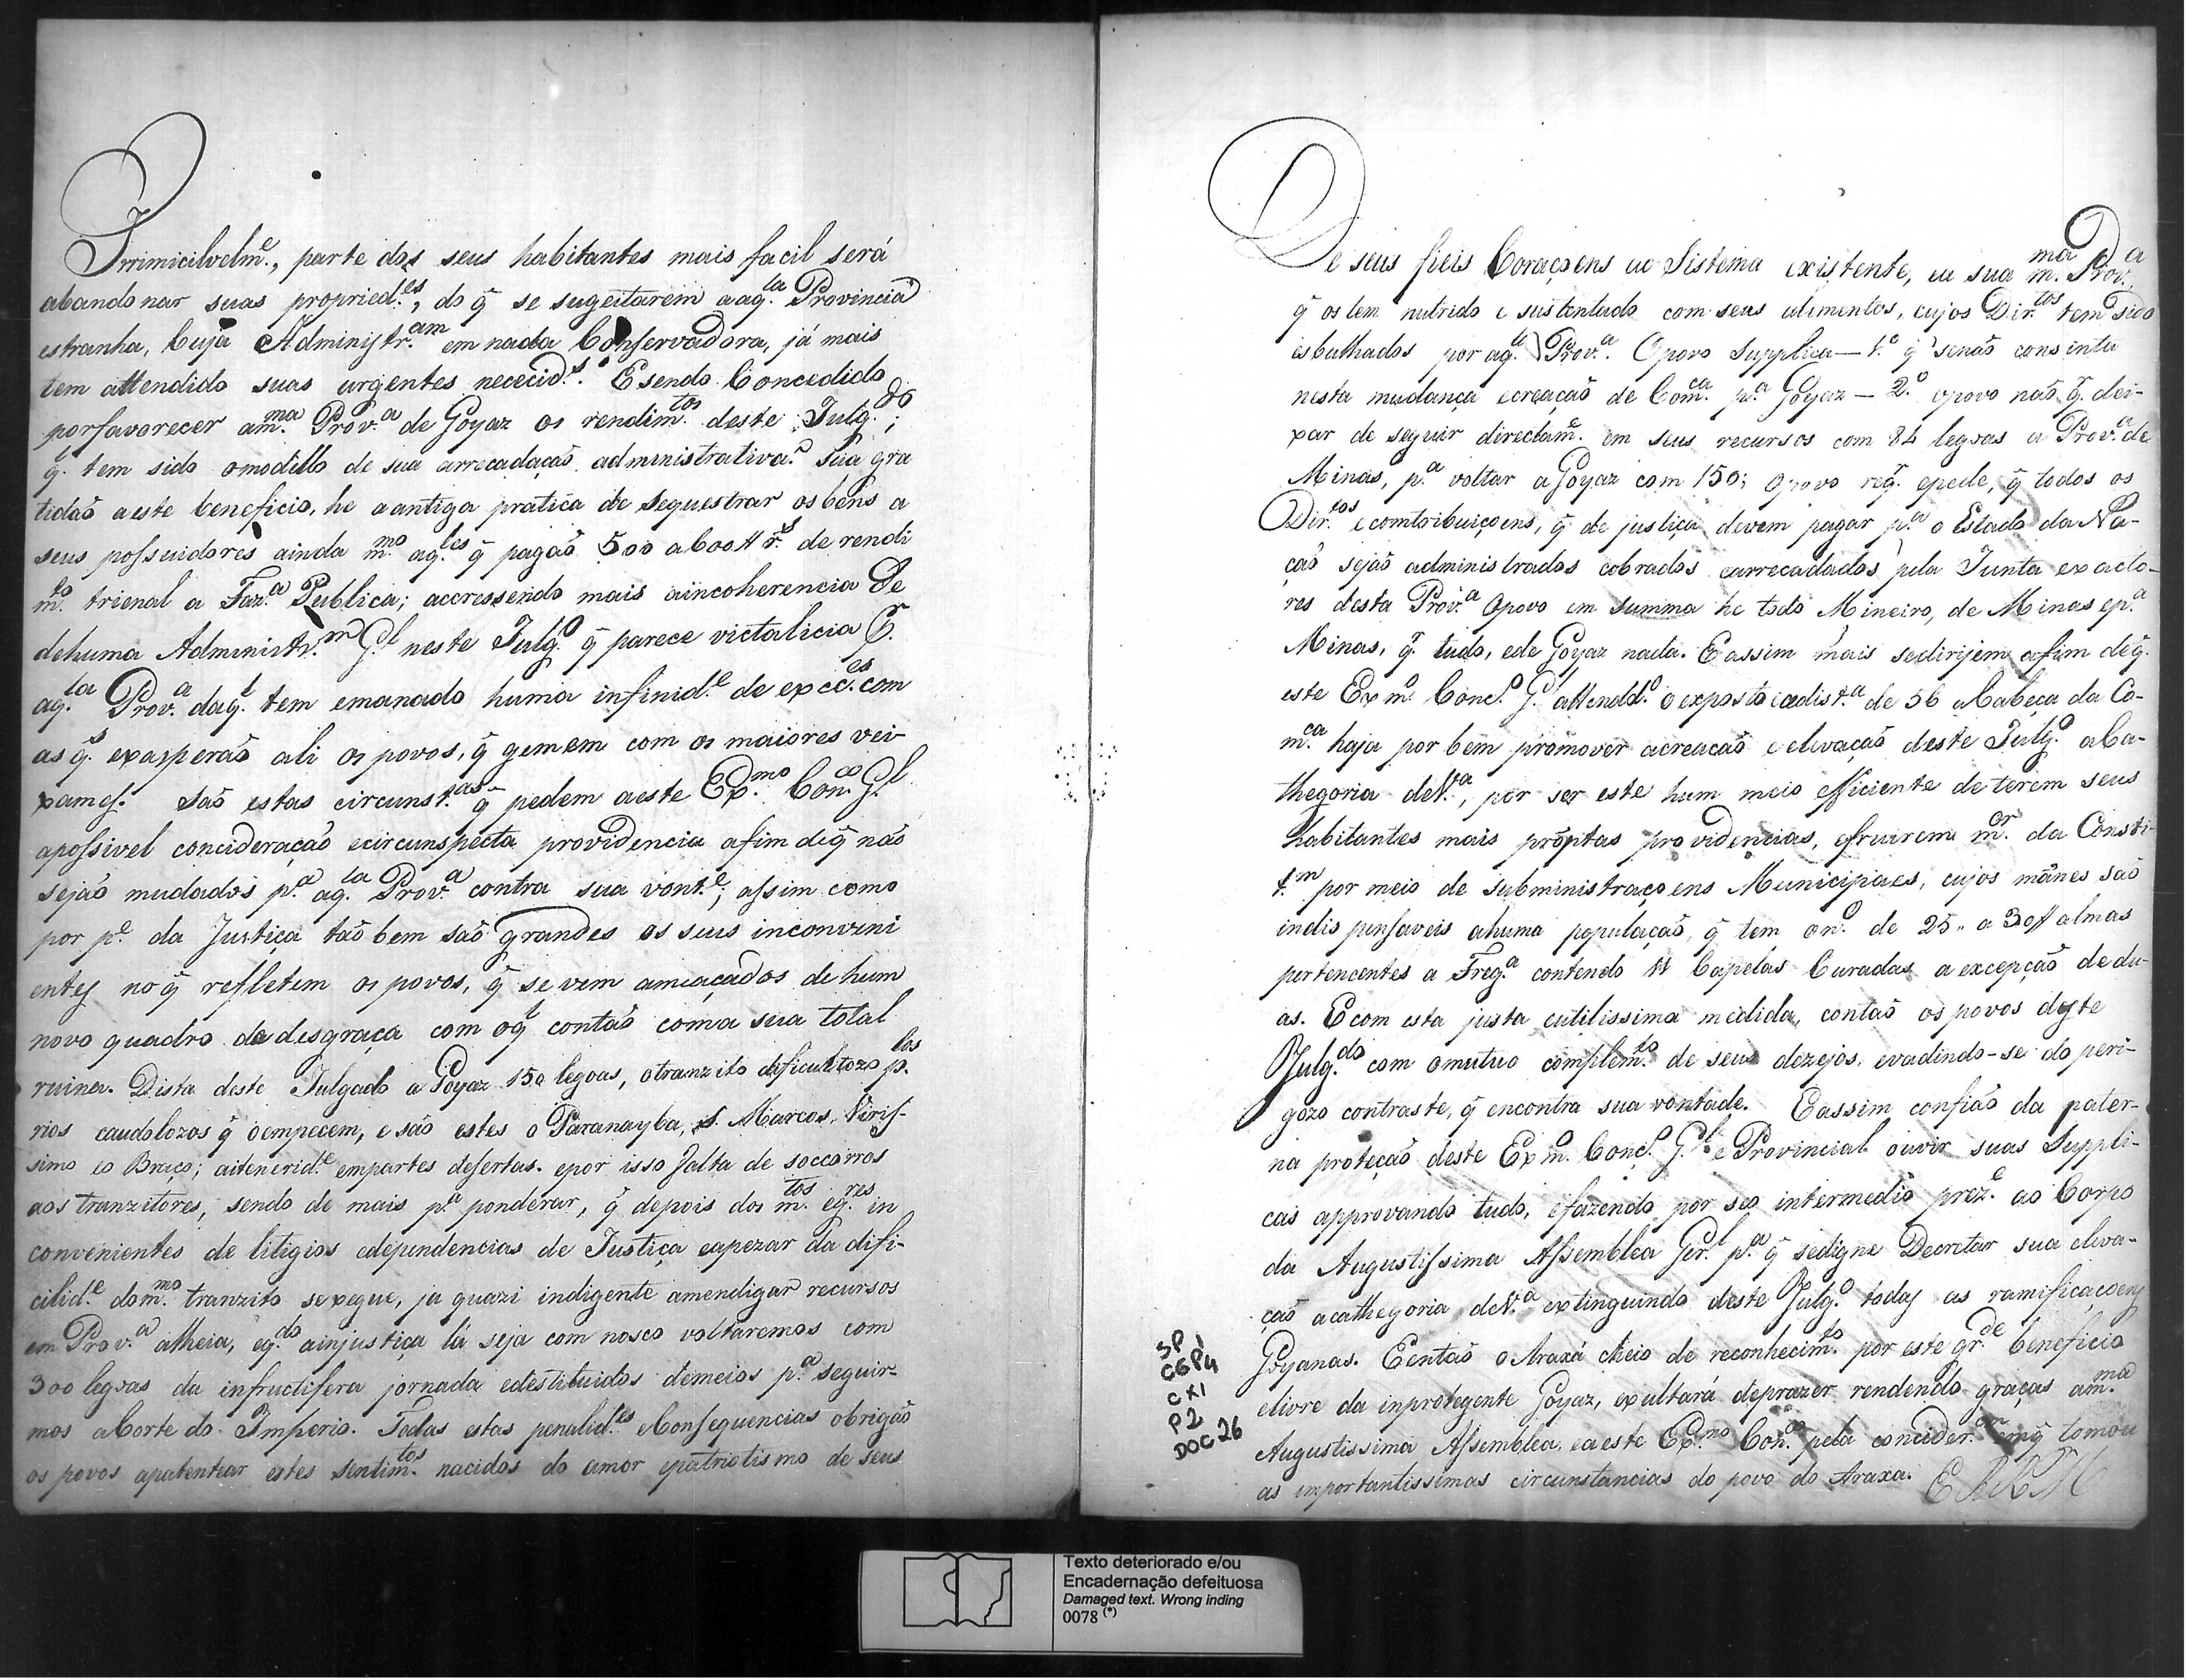 Irrimicilvelm.e, parte dos seus habitantes mais facil será
abandonar suas propried.es, do q̃ se sugeitarem a aq.la Provincia
estranha, Cuja Administr.am em nada Conservadora, já mais
tem attendido suas urgentes nececid.s. E sendo Concedido
por favorecer a m.ma Prov.a de Goyaz os rendim.tos deste Julg.do;
q̃ tem sido o modillo de sua arrecadação administrativa. Sua gra
tidaõ a este beneficio, he a antiga pratica de sequestrar os bens a
seus possuidores ainda m.mo aq.les q̃ pagaõ 500 a 600 r.s de rendi
m.to trienal a Faz.a Publica; accressendo mais a incoherencia De
dehuma Administr.m G.l neste Julg.o q̃ parece victalicia P.
aq.la Prov.a da q.l tem emanado huma infinid.e de excc.es com
as q.s exasperaõ ali os povos, q̃ gemem com os maiores vei
xames. Saõ estas circunst.as q̃ pedem a este Ex.mo Con.co G.l
a possivel concideraçaõ e circunspecta providencia afim de q̃ não
sejaõ mudados p.a aq.la Prov.a contra sua vont.e, assim como
por p.e da Justiça taõ bem saõ grandes os seus inconveni
entes no q̃ refletem os povos, q̃ se vem ameaçados de hum
novo quadro da desgraça com o q.l contaõ com a sua total
ruina. Dista deste Julgado a Goyaz 150 legoas, o tranzito dificultozo p.los
rios caudolozos q̃ o empecem, e são estes o Paranayba, S. Marcos, Viris-
simo e o Braço; aitenerid.e em partes desertas. e por isso falta de soccorros
aos tranzitores, sendo de mais p.a ponderar, q̃ depois dos m.tos e g.res in
convenientes de litigios e dependencias de Justiça e apezar da difi-
cilid.e do m.mo tranzito se xegue, ja quazi indigente a mendigar recursos
em Prov.a alheia, e q.do a injustiça lá seja com nosco voltaremos com
300 legoas da infructifera jornada e destituidos de meios p.a seguir-
mos a Corte do Imperio. Todas estas penalid.es e Consequencias obrigaõ
os povos apatentear estes sentim.tos nacidos do amor e patriotismo de seus
De seus fieis Coraçoens ao Sistema existente, e a sua m.ma Prov.a
q̃ os tem nutrido e sustentado com seus alimentos, cujos Dir.tos tem sido
esbulhados por aq.la Prov.a. O povo Supplica — 1.o q̃ senão consinta
nesta mudança e creaçaõ de Com.ca p.a Goyaz — 2.o o povo não q.r dei-
xar de seguir directam.e em seus recursos com 84 legoas a Prov.a de
Minas, p.a voltar a Goyaz com 150; O povo req.r e pede, q̃ todos os
Dir.tos e comtribuiçoens, q̃ de justiça devem pagar p.a o Estado da Na-
ção sejaõ administrados cobrados e arrecadados pela Junta e xacto-
res desta Prov.a O povo em Summa he todo Mineiro, de Minas e p.a
Minas, q.r tudo, e de Goyaz nada. E assim mais se dirijem afim de q̃
este Ex.mo Conc.o G.l attend.do o exposto e a dist.a de 56 a Cabeça da Co-
m.ca haja por bem promover a creacaõ e elevaçaõ deste Julg.o a Ca-
thegoria de V.a, por ser este hum meio efficiente de terem seus
habitantes mais prõptas providencias, e fruirem m.or da Consti-
t.m por meio de Subministraçoens Municipaes, cujos mãnes são
indispensaveis a huma populaçaõ, q̃ tem o n.o de 25 a 30 almas
pertencentes a Freg.a contendo 11 Capelas Curadas a excepçaõ de du-
as. E com esta justa e utilissima medida, contaõ os povos deste
Julg.do com o mutuo complem.to de seus dezejos, evadindo-se do peri-
gozo contraste, q̃ encontra sua vontade. E assim confiaõ da pater-
na proteçaõ deste Ex.mo Conc.o G.l e Provincial ouvir suas Suppli-
cas approvando tudo, e fazendo por seo intermedio prez.e ao Corpo
da Augustissima Assemblea Ger.l p.a q̃ se digne Decretar sua eleva-
çaõ a cathegoria de V.a extinguindo deste Julg.o todas as ramificaçoens
Goyanas. E entaõ o Araxá cheio de reconhecim.to por este gr.de beneficio
e livre da inprotegente Goyaz, exultará de prazer rendendo graças a m.ma
Augustissima Assemblea, e a este Ex.mo Con.co pela concider.m em q̃ tomou
as importantissimas circunstancias do povo do Araxa. E R M
SP 1
CGP4
CX1
P2
DOC 26
Texto deteriorado e/ou
Encadernação defeituosa
Damaged text. Wrong inding
0078 (*)